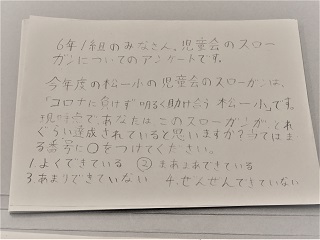 6年1組のみなさん、児童会のスロー
ガンについてのアンケートです。
今年度の松一小の児童会のスローガンは、
「コロナに負けず 明るく助け合う 松一小」です。
現時点で、あなたは、このスローガンが、どれ
ぐらい達成されていると思いますか?当てはま
る番号に〇をつけてください。
1.よくできている ②まあまあできている
3 あまりできていない 4.ぜんぜんできていない